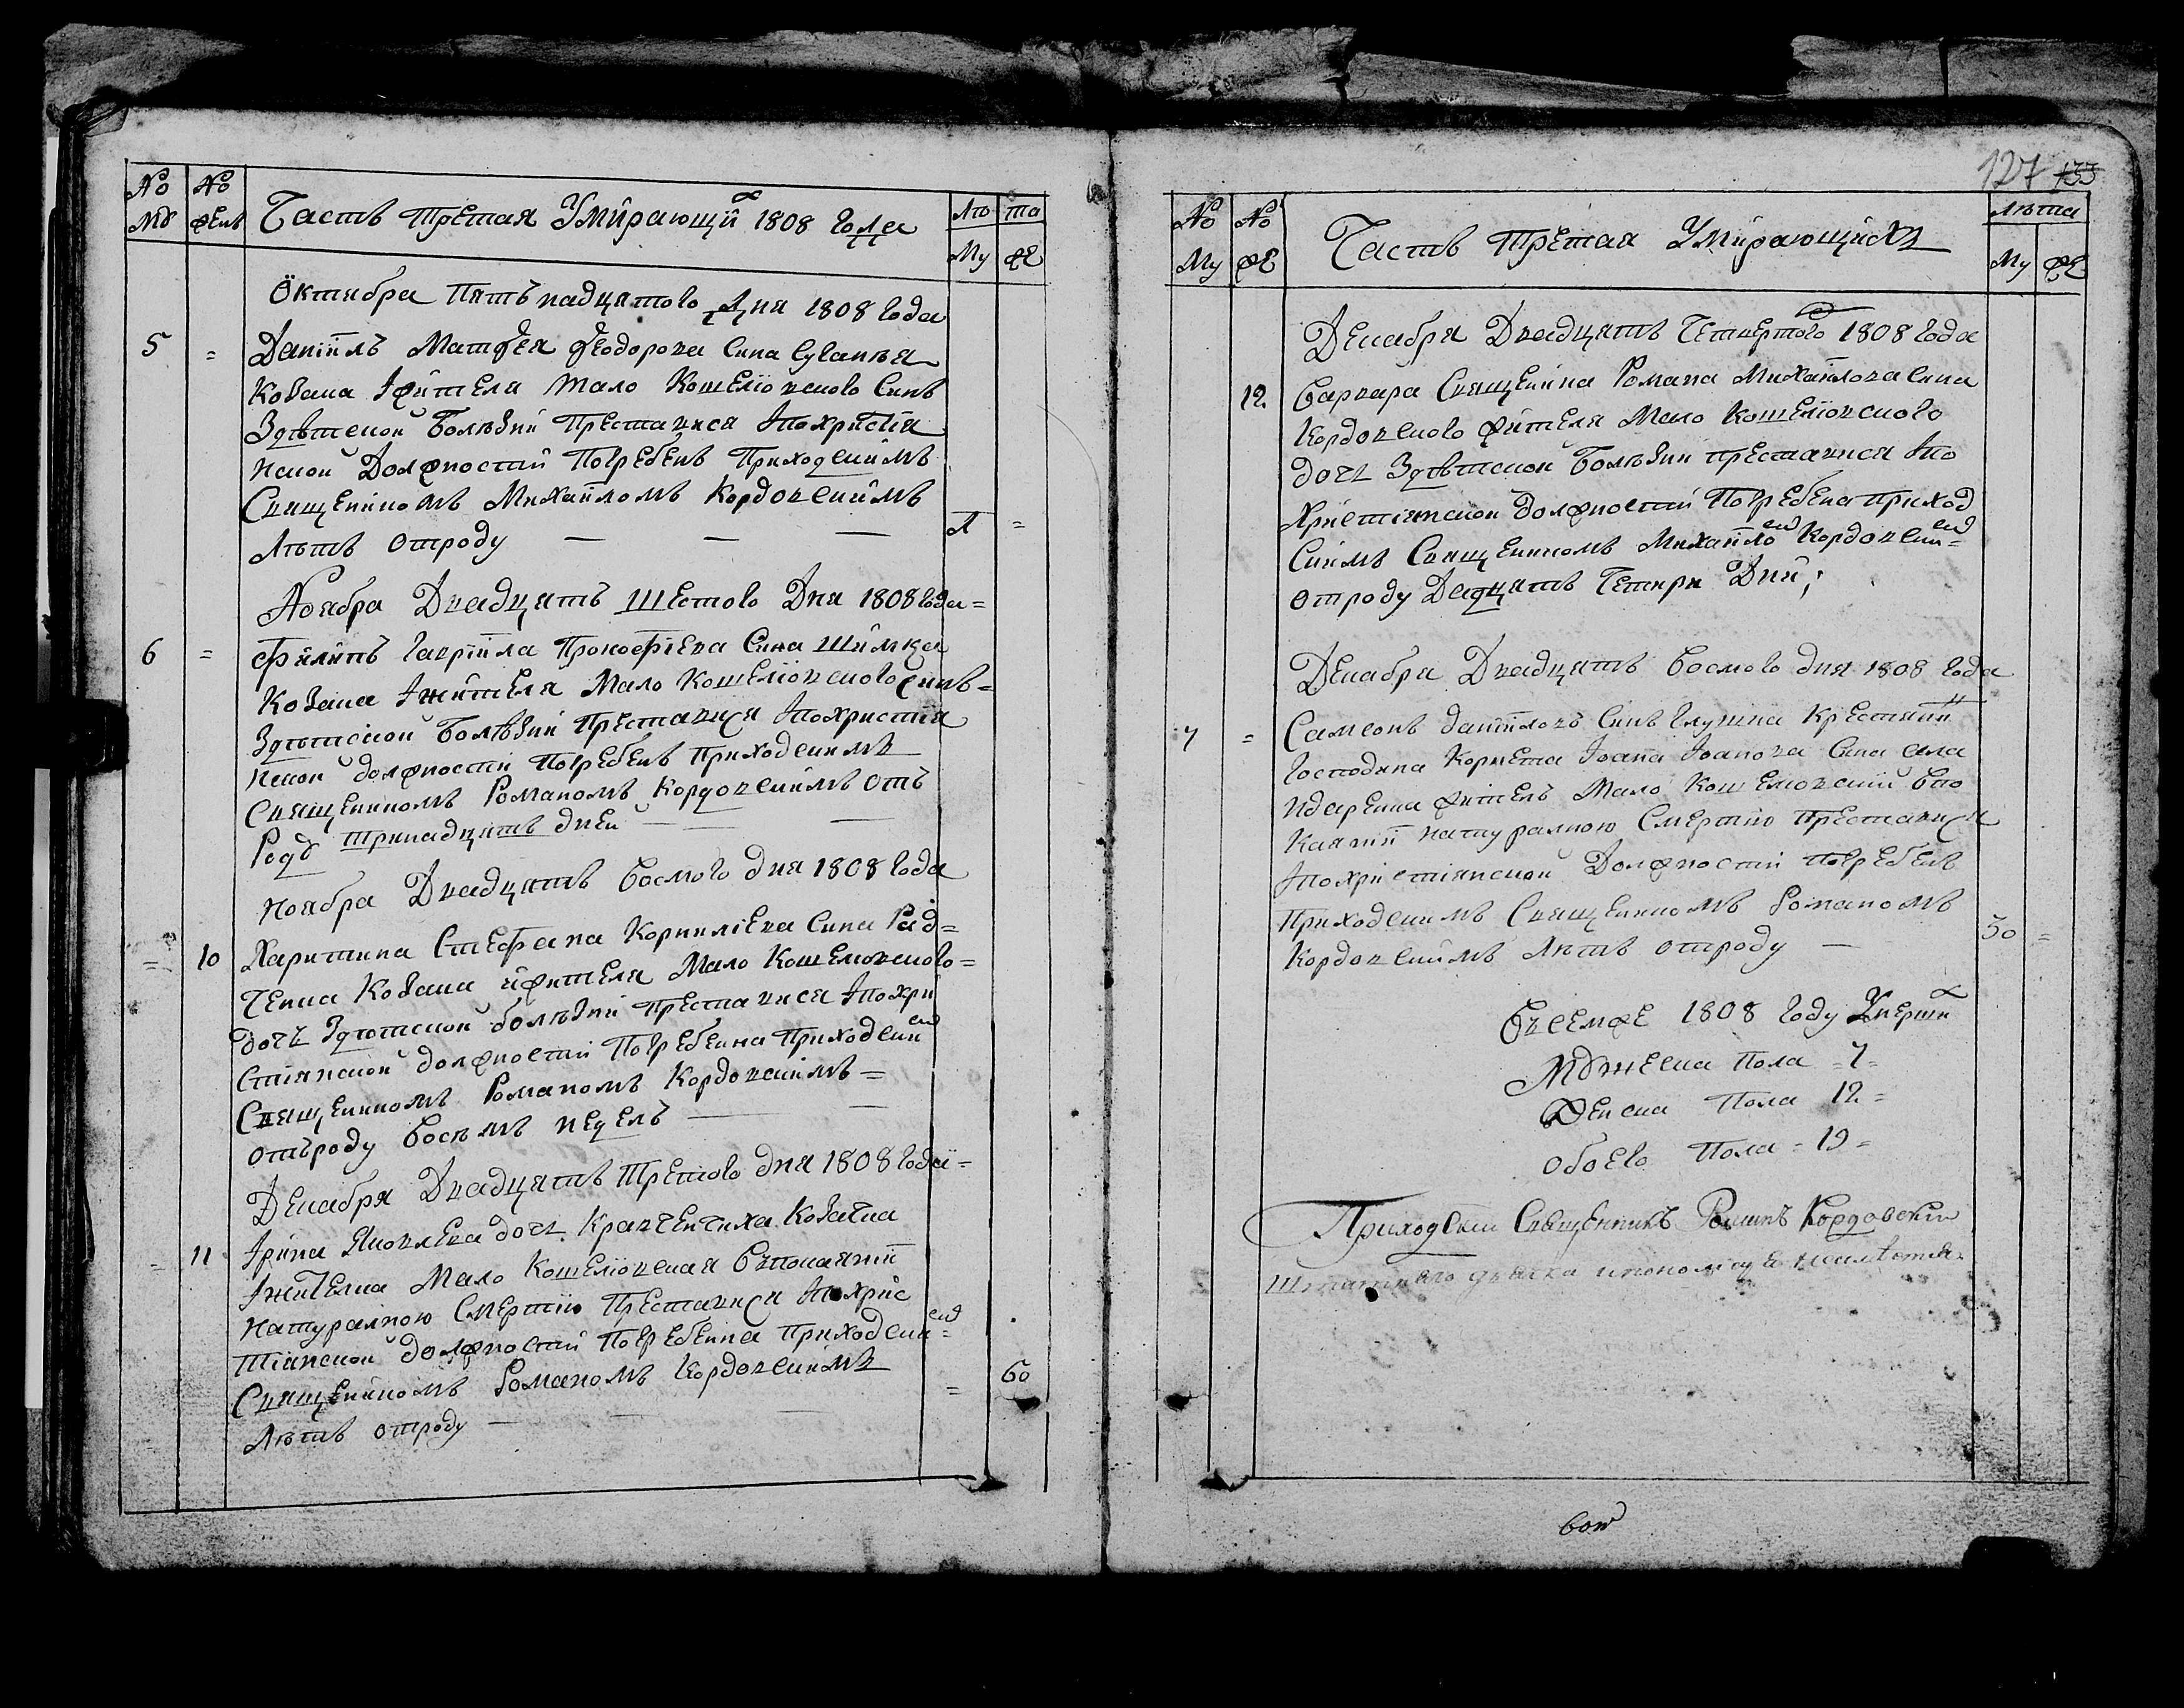 No No
Мꙋ жен Часть третая Умирающих 1808 года Лѣ та
Му же
Октября Пятьнадцятого дня 1808 года
5 = Даниилъ Матфея Феодорова Сина
Козака Ижителя Мало Кошеліовского Синъ
Здѣтской Болѣзни Преставися Ипохристия
нской Должности Погребенъ Приходскимъ
Священникомъ Михаиломъ Кордовскимъ
Лѣтъ отроду — — — 1 =
Ноября Двадцять Шестого Дня 1808 года =
6 = Филипъ Гавриила Прокофіева Сина Шимка
Козака Ижителя Мало Кошеліовского Синъ =
Здѣтской Болѣзни Преставися Ипохристия
нской должности Погребенъ Приходскимъ
Священникомъ Романомъ Кордовскимъ Отъ
Родꙋ тринадцять дней — — —
Ноября Двадцять Восмого дня 1808 года
= 10 Харитина Стефана Корниліева Сина Рад=
ченка Козака ижителя Мало Кошеловского =
дочь Здѣтской болѣзни преставися Ипохри
стіянской должности Погребенна Приходским
Священникомъ Романомъ Кордовскимъ =
отъроду Восѣмъ недель — —
Декабря Двадцять Третого дня 1808 года =
= 11 Ирина Яковлева дочь Кравченчиха Козачка
Ижителка Мало Кошеліовская Въпокаянии
натуралною Смертию Преставися Ипохрис
тіянской должности Погребенна приходским =
Священникомъ Романомъ Кордовскимъ = 60
Лѣтъ отроду — — —
127 133
No No Лѣта
Му же Часть третая Умирающихъ Му же
Декабря Двадцять Четвертого 1808 года
12 Варвара Священника Романа Михайлова Сина
Кордовского жителя Мало Кошеліовского
дочь Здѣтской Болѣзни преставися Ипо
христіянской должности Погребена приход
скимъ Священникомъ Михаилом Кордовским =
отроду Дадцять Четири Дни;
Декабря Двадцять Восмого дня 1808 года
7 = Самсонъ Даниловъ Синъ Глушка Крестянин
Господина Корнета Іоана Іоанова Сина
жителъ Мало Кошеловский Впо
каянии натуралною Смертию Преставися
Ипохристіянской Должности погребенъ
Приходскимъ Священникомъ Романомъ
Кордовскимъ Лѣтъ отроду — 30 =
Въсемже 1808 году Умерших
Мꙋжеска Пола = 7 =
Женска Пола 12 =
Обоего Пола = 19 =
Приходский Священникъ Романъ Кордовский
Штатного дьячка ипономаря неимѣется